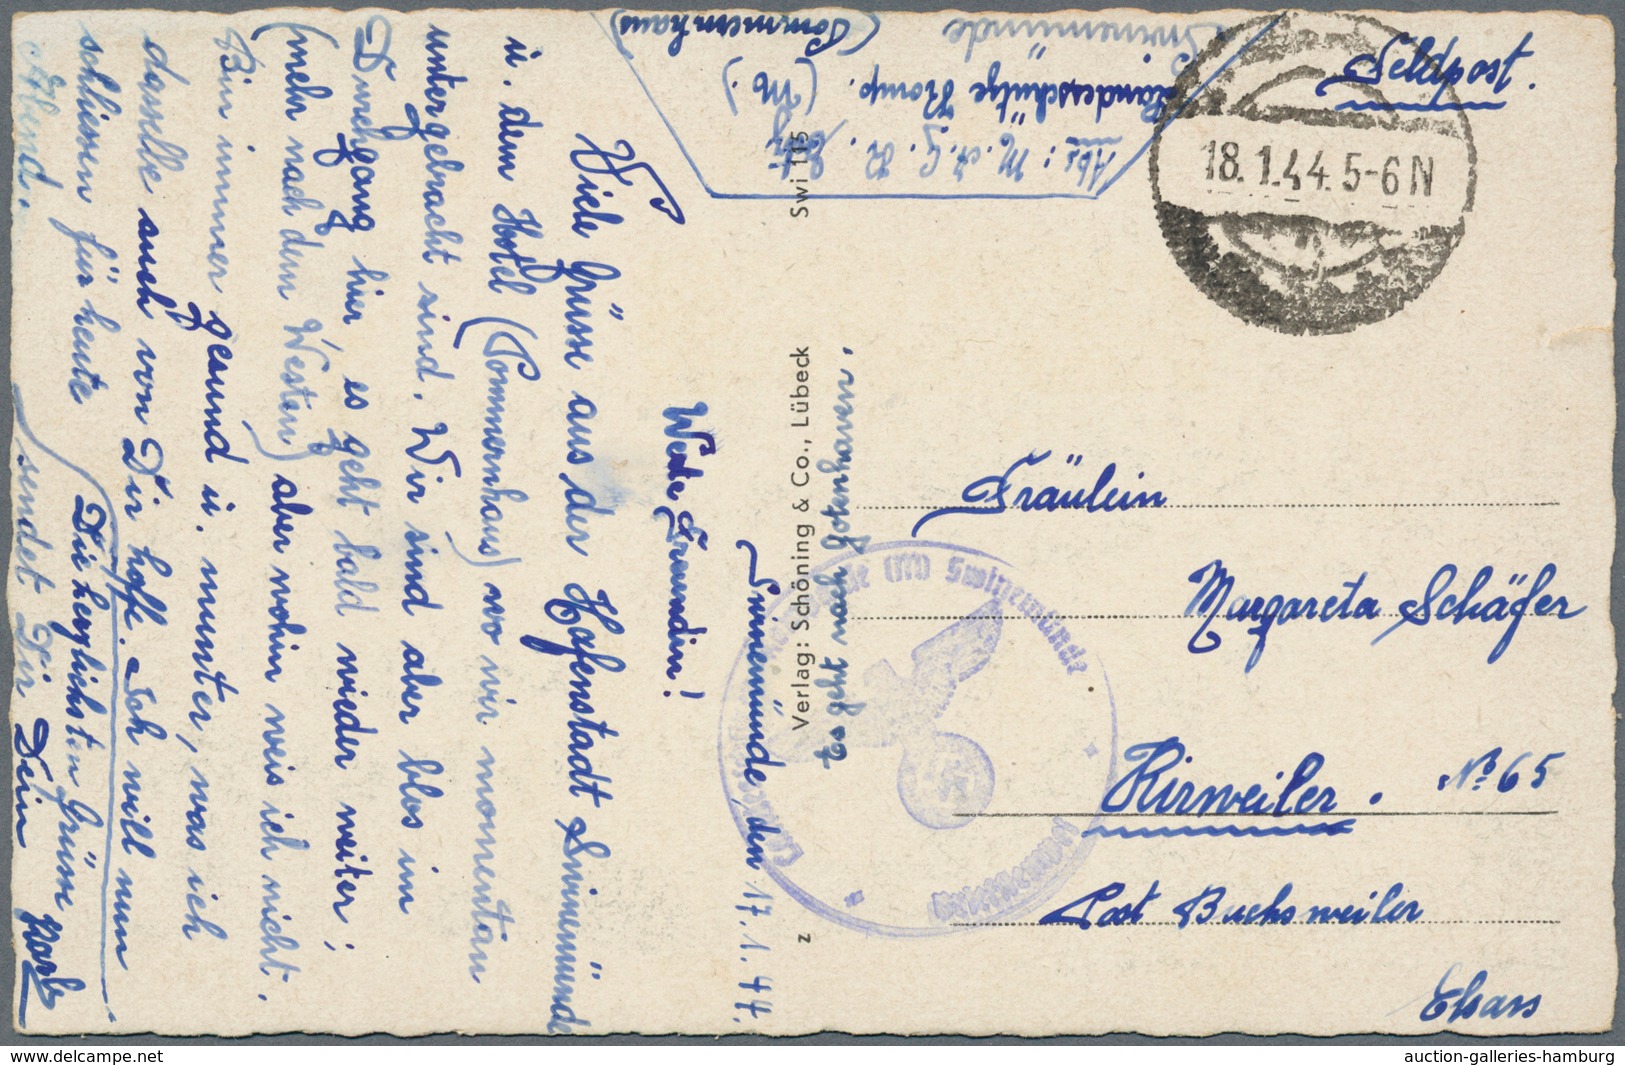 Feldpost.
18.1.44.5-6N
Abs: M.A.G.R.
Landesschütze Komp. (M.)
Swinemünde
(Pommernhaus)
Swi 115
Verlag: Schöning & Co., Lübeck
z
Es geht nach Gotenhaven.
(M) Swinemünde
Fräulein
Margareta Schäfer
Kirweiler. № 65
Post Buchsweiler
Elsass
Swinemünde, den 17.1.44.
Werte Freundin!
Viele Grüsse aus der Hafenstadt Swinemünde
u. dem Hotel (Pommernhaus) wo wir momentan
untergebracht sind. Wir sind aber blos im
Durchgang hier es geht bald wieder weiter;
(mehr nach dem Westen) aber wohin weis ich nicht.
Bin immer gesund u. munter, was ich
dasselbe auch von Dir hoffe. Ich will nun
schliessen für heute
Die herzlichsten Grüsse
Abend.
sendet Dir Dein
auction-galleries-hamburg
www.delcampe.net